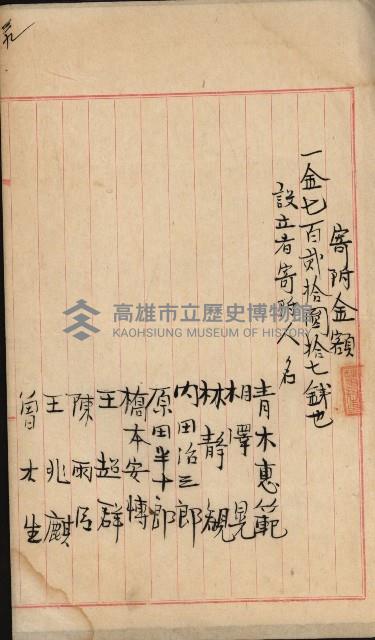 寄附金額
一金七百貳拾圓拾七錢也
設立者寄附人名
青木惠範
相澤晃
林靜觀
内田治三郎
原田半十郎
橋本安博
王超群
陳雨
王兆麒
曾大生
高雄市立歷史博物館
KAOHSIUNG MUSEUM OF HISTORY